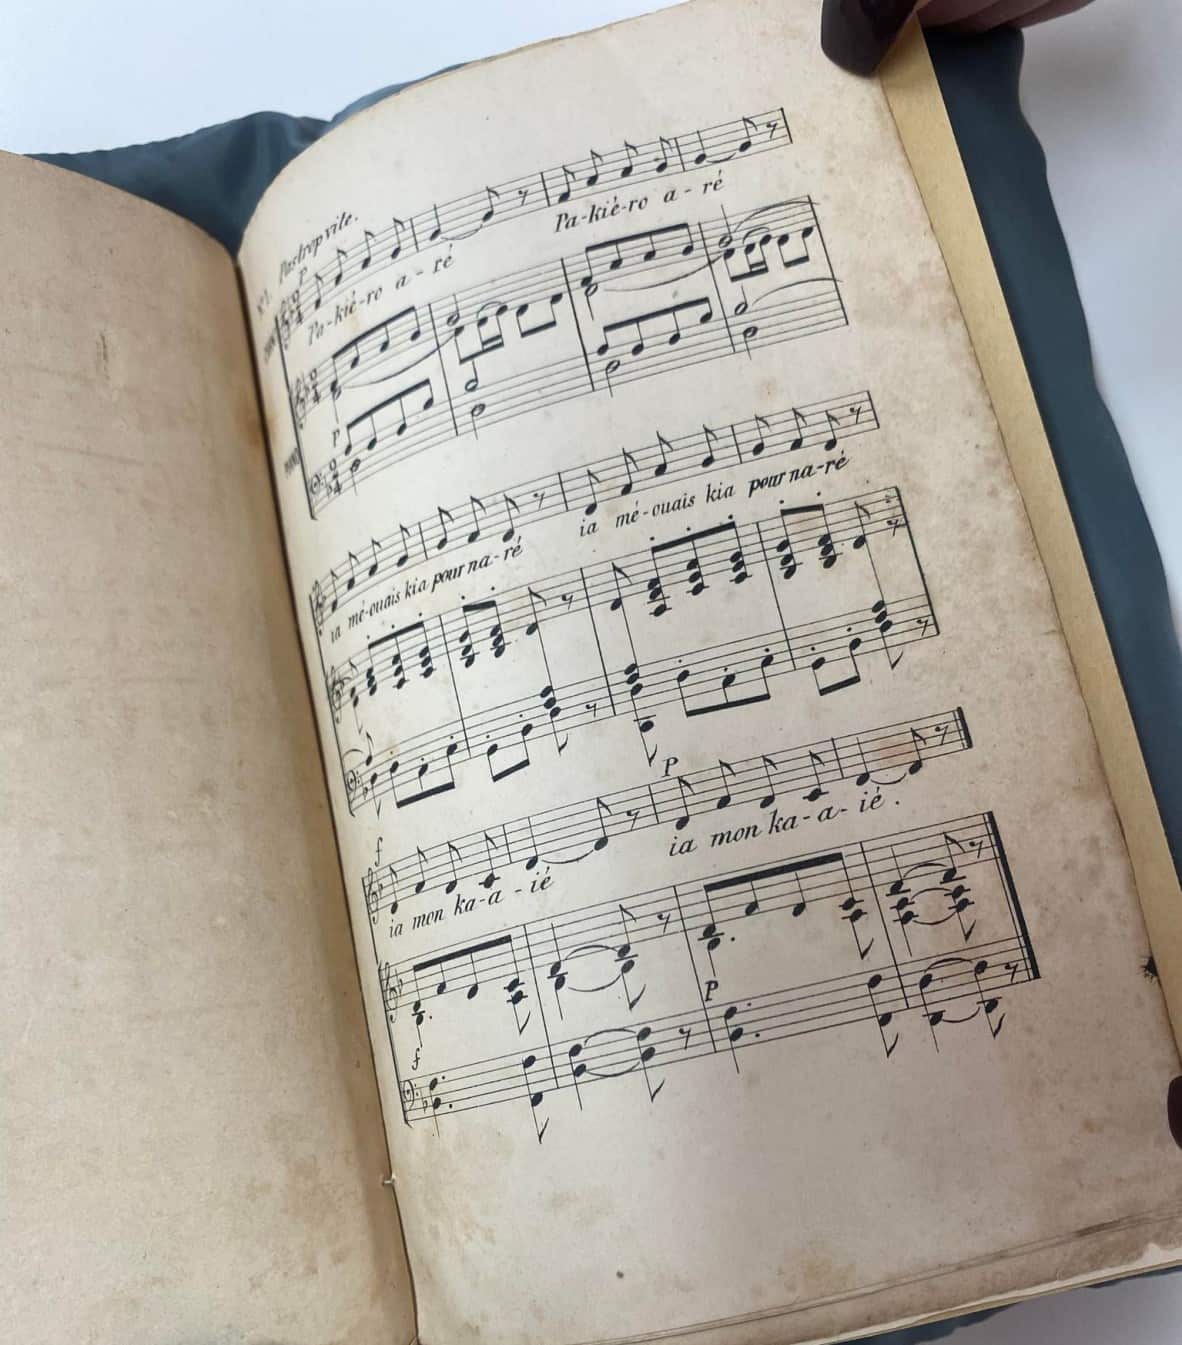 N° 1. Pas trop vite.
P
Pa-kié-ro a-ré Pa-kié-ro a-ré
P
ia mé-ouais kia pour na-ré ia mé-ouais kia pour na-ré
f P
ia mon ka-a-ié ia mon ka-a-ié.
f P